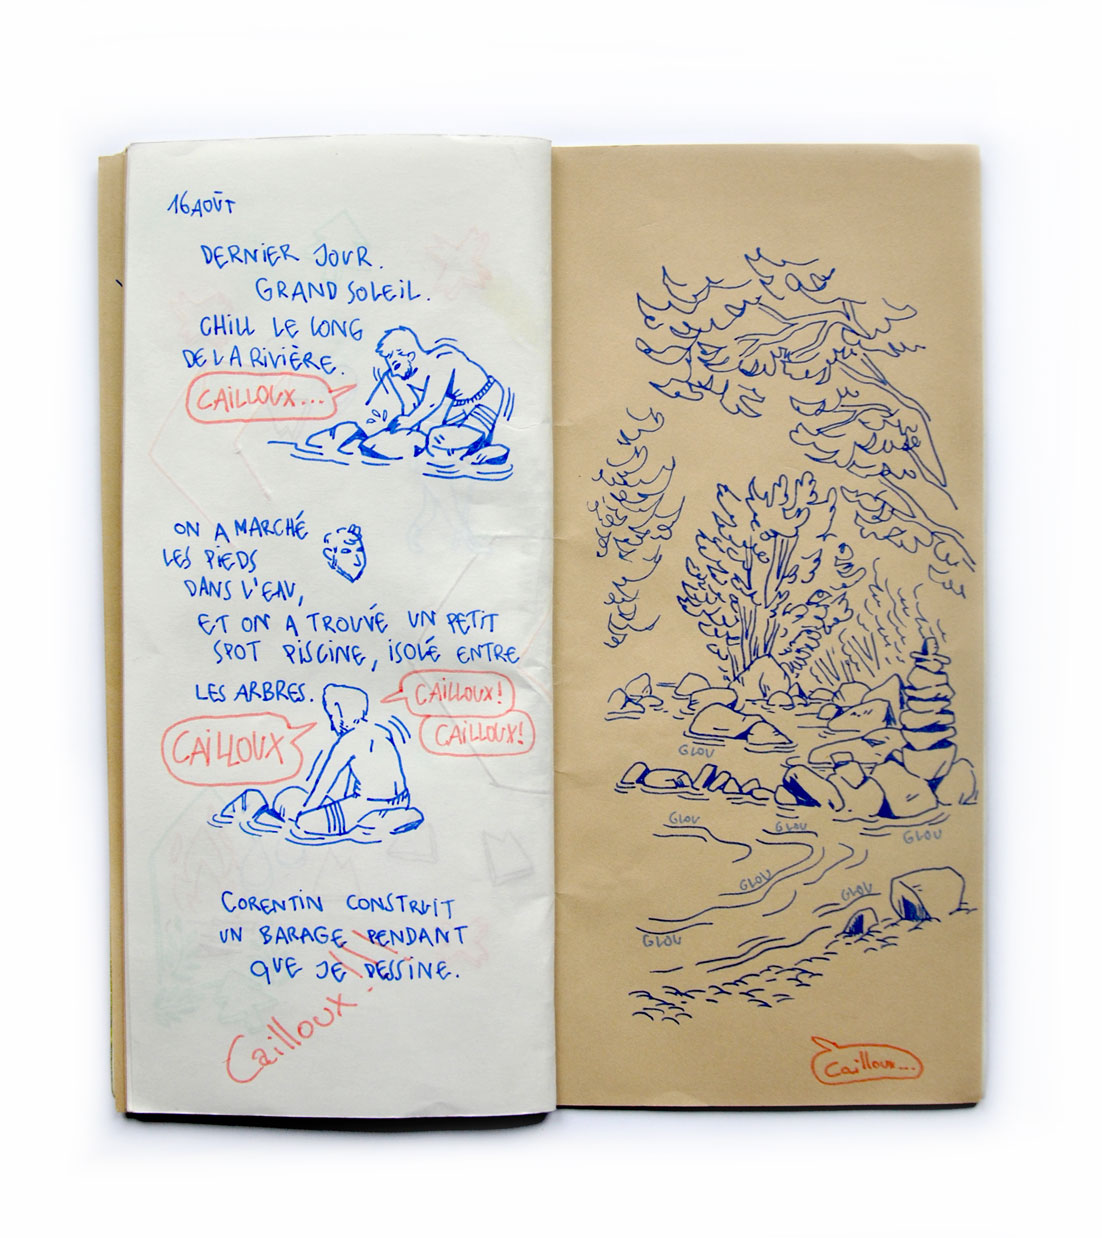 16 AOÛT
DERNIER JOUR.
GRAND SOLEIL.
CHILL LE LONG
DE LA RIVIÈRE.
CAILLOUX...
ON A MARCHÉ
LES PIEDS
DANS L'EAU,
ET ON A TROUVÉ UN PETIT
SPOT PISCINE, ISOLÉ ENTRE
LES ARBRES.
CAILLOUX!
CAILLOUX!
CAILLOUX
CORENTIN CONSTRUIT
UN BARAGE PENDANT
QUE JE DESSINE.
Cailloux!!!
GLOU
GLOU
GLOU
GLOU
GLOU
GLOU
GLOU
Cailloux...